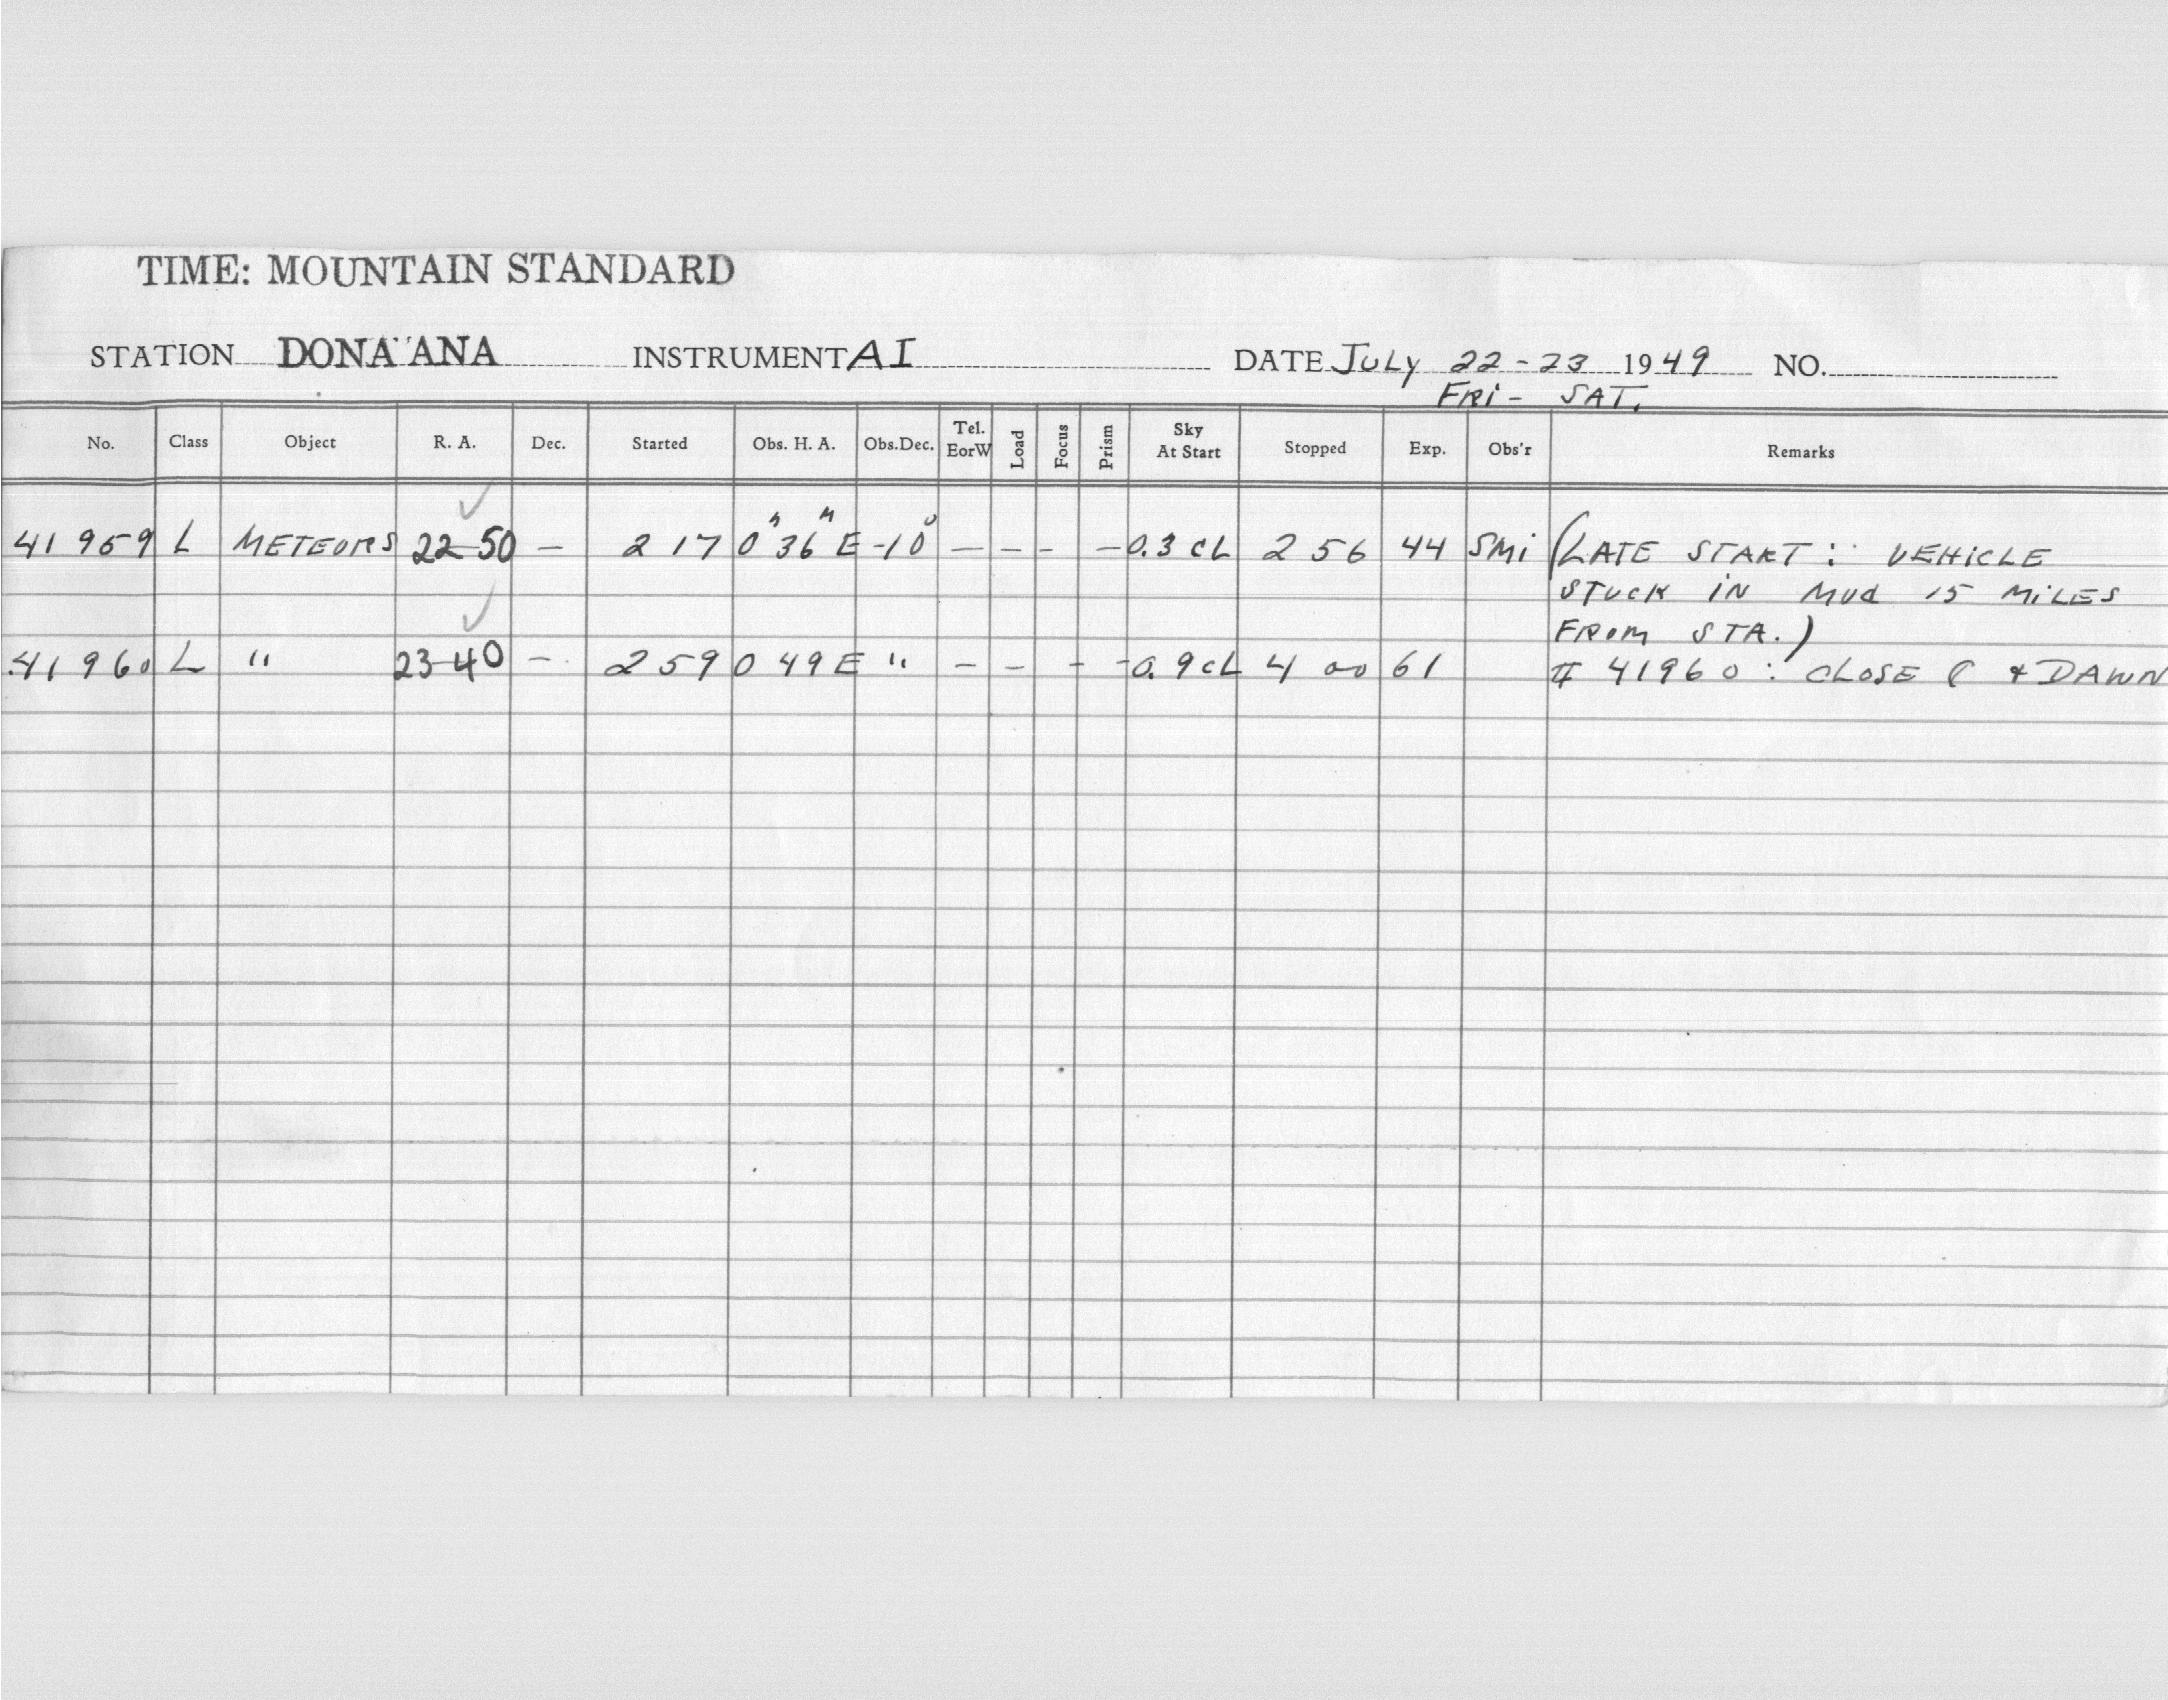 TIME: MOUNTAIN STANDARD
STATION DONA ANA INSTRUMENT AI DATE JULY 22-23 1949 NO.
FRI- SAT.
No. Class Object R. A. Dec. Started Obs. H. A. Obs.Dec. Tel. EorW Load Focus Prism Sky At Start Stopped Exp. Obs'r Remarks
41959 L METEORS 22-50 — 2 17 0ʰ 36ᵐ E -10° — — - — 0.3 CL 2 56 44 SMi (LATE START: VEHICLE
STUCK IN MUD 15 MILES
FROM STA.)
41960 L " 23-40 — 2 59 0 49 E " — — - - 0.9 CL 4 00 61 # 41960: CLOSE ☾ & DAWN